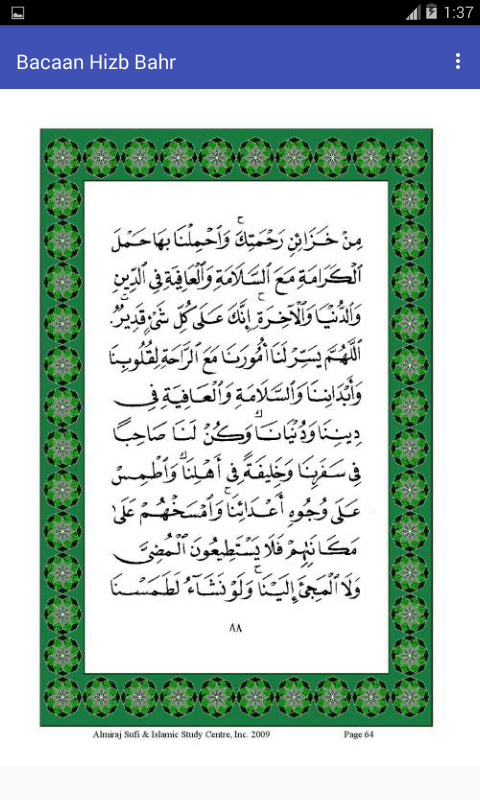 1:37
Bacaan Hizb Bahr
مِنْ خَزَائِنِ رَحْمَتِكَ ۚ وَٱحْمِلْنَا بِهَا حَمْلَ
ٱلْكَرَامَةِ مَعَ ٱلسَّلَامَةِ وَٱلْعَافِيَةِ فِى ٱلدِّينِ
وَٱلدُّنْيَا وَٱلْآخِرَةِ ۚ إِنَّكَ عَلَى كُلِّ شَىْءٍ قَدِيرٌ
ٱللَّهُمَّ يَسِّرْ لَنَا أُمُورَنَا مَعَ ٱلرَّاحَةِ لِقُلُوبِنَا
وَأَبْدَانِنَا وَٱلسَّلَامَةِ وَٱلْعَافِيَةِ فِى
دِينِنَا وَدُنْيَانَا وَكُنْ لَنَا صَاحِبًا
فِى سَفَرِنَا وَخَلِيفَةً فِى أَهْلِنَا وَٱطْمِسْ
عَلَى وُجُوهِ أَعْدَائِنَا ۚ وَٱمْسَخْهُمْ عَلَىٰ
مَكَانَتِهِمْ فَلَا يَسْتَطِيعُونَ ٱلْمُضِىَّ
وَلَا ٱلْمَجِىْٔ إِلَيْنَا ۚ وَلَوْ نَشَآءُ لَطَمَسْنَا
٨٨
Almiraj Sufi & Islamic Study Centre, Inc. 2009 Page 64